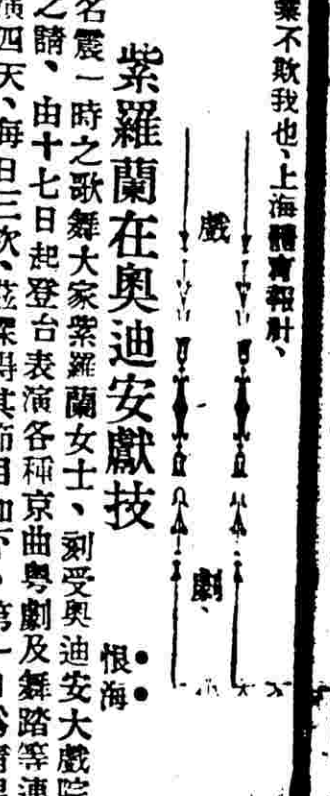 業不欺我也、上海體育報社、
戲劇、
紫羅蘭在奧迪安獻技
恨海
名震一時之歌舞大家紫羅蘭女士、刻受奧迪安大戲院
之請、由十七日起登台表演各種京曲粵劇及舞踏等連
演四天、每日三次、茲探得其節目如下、第一日